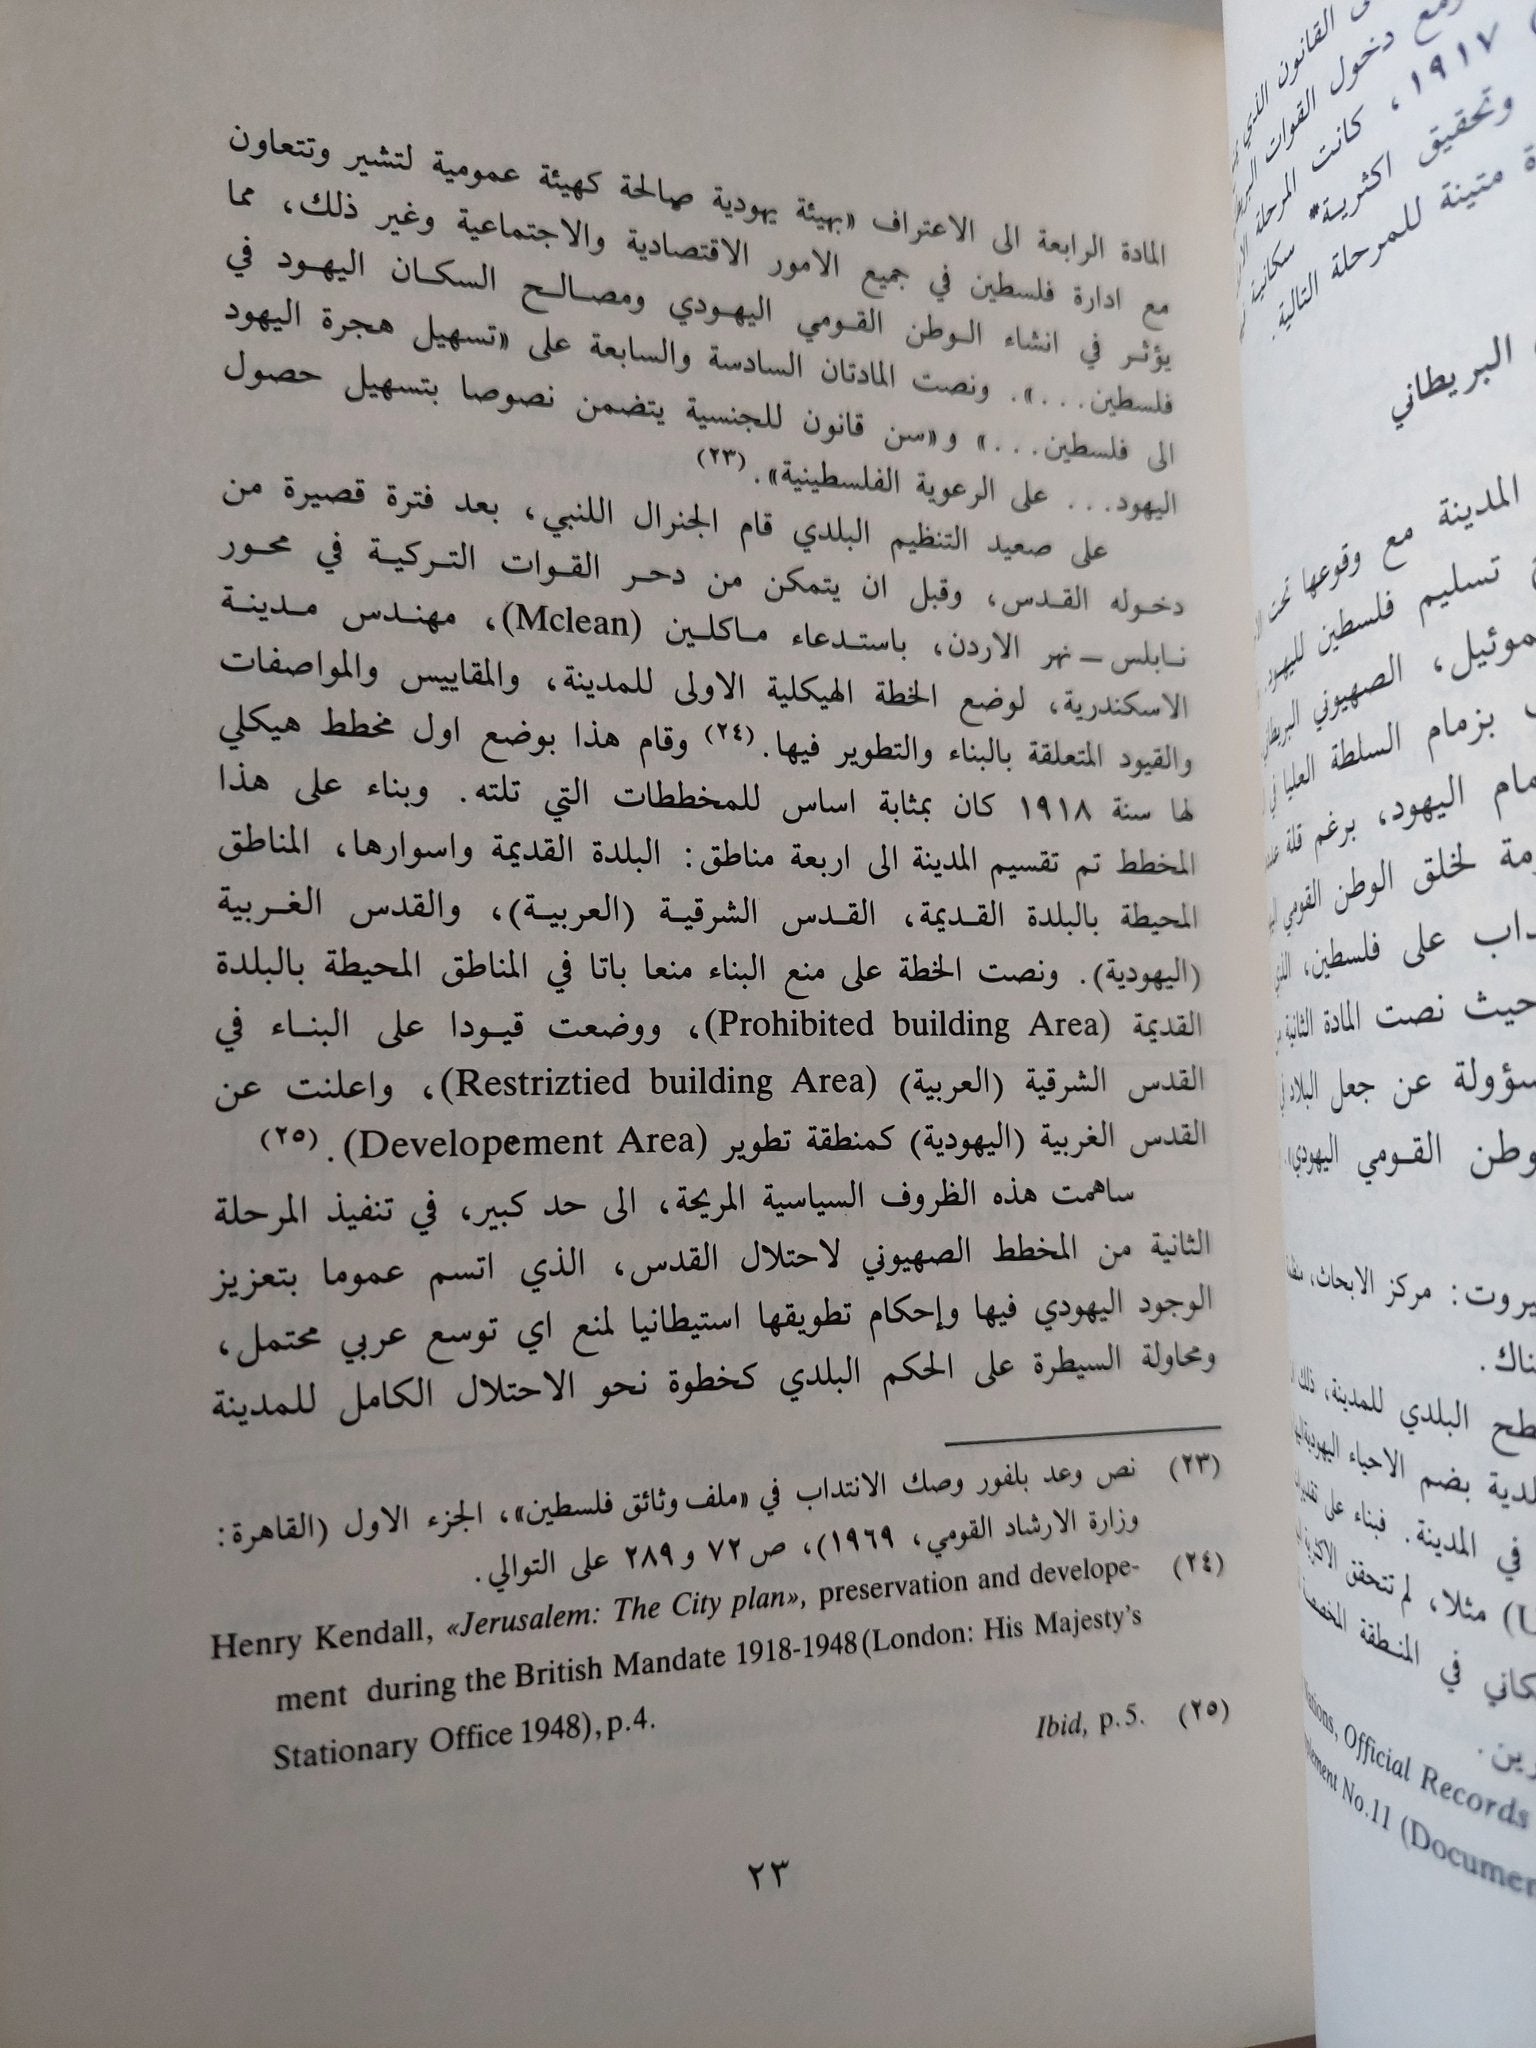 المادة الرابعة الى الاعتراف «بهيئة يهودية صالحة كهيئة عمومية لتشير وتتعاون
مع ادارة فلسطين في جميع الامور الاقتصادية والاجتماعية وغير ذلك، مما
يؤثر في انشاء الوطن القومي اليهودي ومصالح السكان اليهود في
فلسطين...». ونصت المادتان السادسة والسابعة على «تسهيل هجرة اليهود
الى فلسطين...» و«سن قانون للجنسية يتضمن نصوصا بتسهيل حصول
اليهود... على الرعوية الفلسطينية».(٢٣)
على صعيد التنظيم البلدي قام الجنرال اللنبي، بعد فترة قصيرة من
دخوله القدس، وقبل ان يتمكن من دحر القوات التركية في محور
نابلس ــ نهر الاردن، باستدعاء ماكلين (Mclean)، مهندس مدينة
الاسكندرية، لوضع الخطة الهيكلية الاولى للمدينة، والمقاييس والمواصفات
والقيود المتعلقة بالبناء والتطوير فيها.(٢٤) وقام هذا بوضع اول مخطط هيكلي
لها سنة ١٩١٨ كان بمثابة اساس للمخططات التي تلته. وبناء على هذا
المخطط تم تقسيم المدينة الى اربعة مناطق: البلدة القديمة واسوارها، المناطق
المحيطة بالبلدة القديمة، القدس الشرقية (العربية)، والقدس الغربية
(اليهودية). ونصت الخطة على منع البناء منعا باتا في المناطق المحيطة بالبلدة
القديمة (Prohibited building Area)، ووضعت قيودا على البناء في
القدس الشرقية (العربية) (Restriztied building Area)، واعلنت عن
القدس الغربية (اليهودية) كمنطقة تطوير (Developement Area).(٢٥)
ساهمت هذه الظروف السياسية المريحة، الى حد كبير، في تنفيذ المرحلة
الثانية من المخطط الصهيوني لاحتلال القدس، الذي اتسم عموما بتعزيز
الوجود اليهودي فيها وإحكام تطويقها استيطانيا لمنع اي توسع عربي محتمل،
ومحاولة السيطرة على الحكم البلدي كخطوة نحو الاحتلال الكامل للمدينة
(٢٣) نص وعد بلفور وصك الانتداب في «ملف وثائق فلسطين»، الجزء الاول (القاهرة:
وزارة الارشاد القومي، ١٩٦٩)، ص ٧٢ و ٢٨٩ على التوالي.
(٢٤) Henry Kendall, «Jerusalem: The City plan», preservation and develope-
ment during the British Mandate 1918-1948 (London: His Majesty's
Stationary Office 1948), p.4.
(٢٥) Ibid, p.5.
٢٣
القانون الذي
دخول القوات
١٩١٧، كانت المرحلة
وتحقيق اكثرية* سكانية
متينة للمرحلة التالية.
البريطاني
المدينة مع وقوعها تحت
تسليم فلسطين لليهود
الصهيوني
بزمام السلطة العليا في
اليهود، برغم قلة
لخلق الوطن القومي
على فلسطين،
حيث نصت المادة الثانية
عن جعل البلاد
القومي اليهودي
مركز الابحاث،
البلدي للمدينة،
بضم الاحياء اليهودية
في المدينة. فبناء على
مثلا، لم تتحقق
في المنطقة
Official Records
No.11